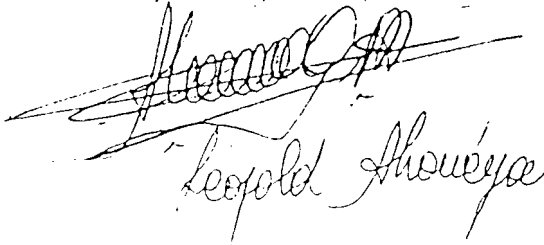 Leopold Ahouéya